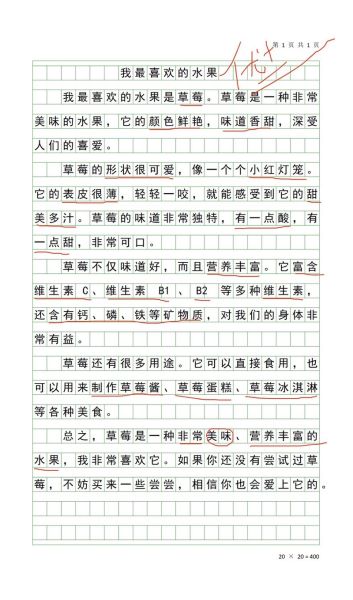 第 1 页 共 1 页
优+
我最喜欢的水果
我最喜欢的水果是草莓。草莓是一种非常
美味的水果，它的颜色鲜艳，味道香甜，深受
人们的喜爱。
草莓的形状很可爱，像一个个小红灯笼。
它的表皮很薄，轻轻一咬，就能感受到它的甜
美多汁。草莓的味道非常独特，有一点酸，有
一点甜，非常可口。
草莓不仅味道好，而且营养丰富。它富含
维生素 C、维生素 B1、B2 等多种维生素，
还含有钙、磷、铁等矿物质，对我们的身体非
常有益。
草莓还有很多用途。它可以直接食用，也
可以用来制作草莓酱、草莓蛋糕、草莓冰淇淋
等各种美食。
总之，草莓是一种非常美味、营养丰富的
水果，我非常喜欢它。如果你还没有尝试过草
莓，不妨买来一些尝尝，相信你也会爱上它的。
20 × 20 = 400